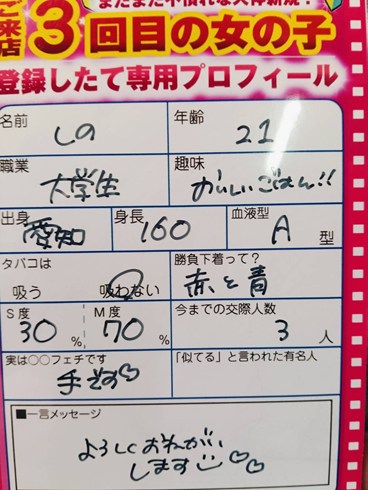 まだまだ不慣れな大体新規!
ご来店3回目の女の子
登録したて専用プロフィール
名前 しの
年齢 21
職業 大学生
趣味 おいしいごはん!!
出身 愛知
身長 160
血液型 A 型
タバコは 吸う 吸わない
勝負下着って? 赤と青
S度 30 %
M度 70 %
今までの交際人数 3 人
実は○○フェチです 手です♡
「似てる」と言われた有名人
■一言メッセージ
よろしくおねがい
します♡♡